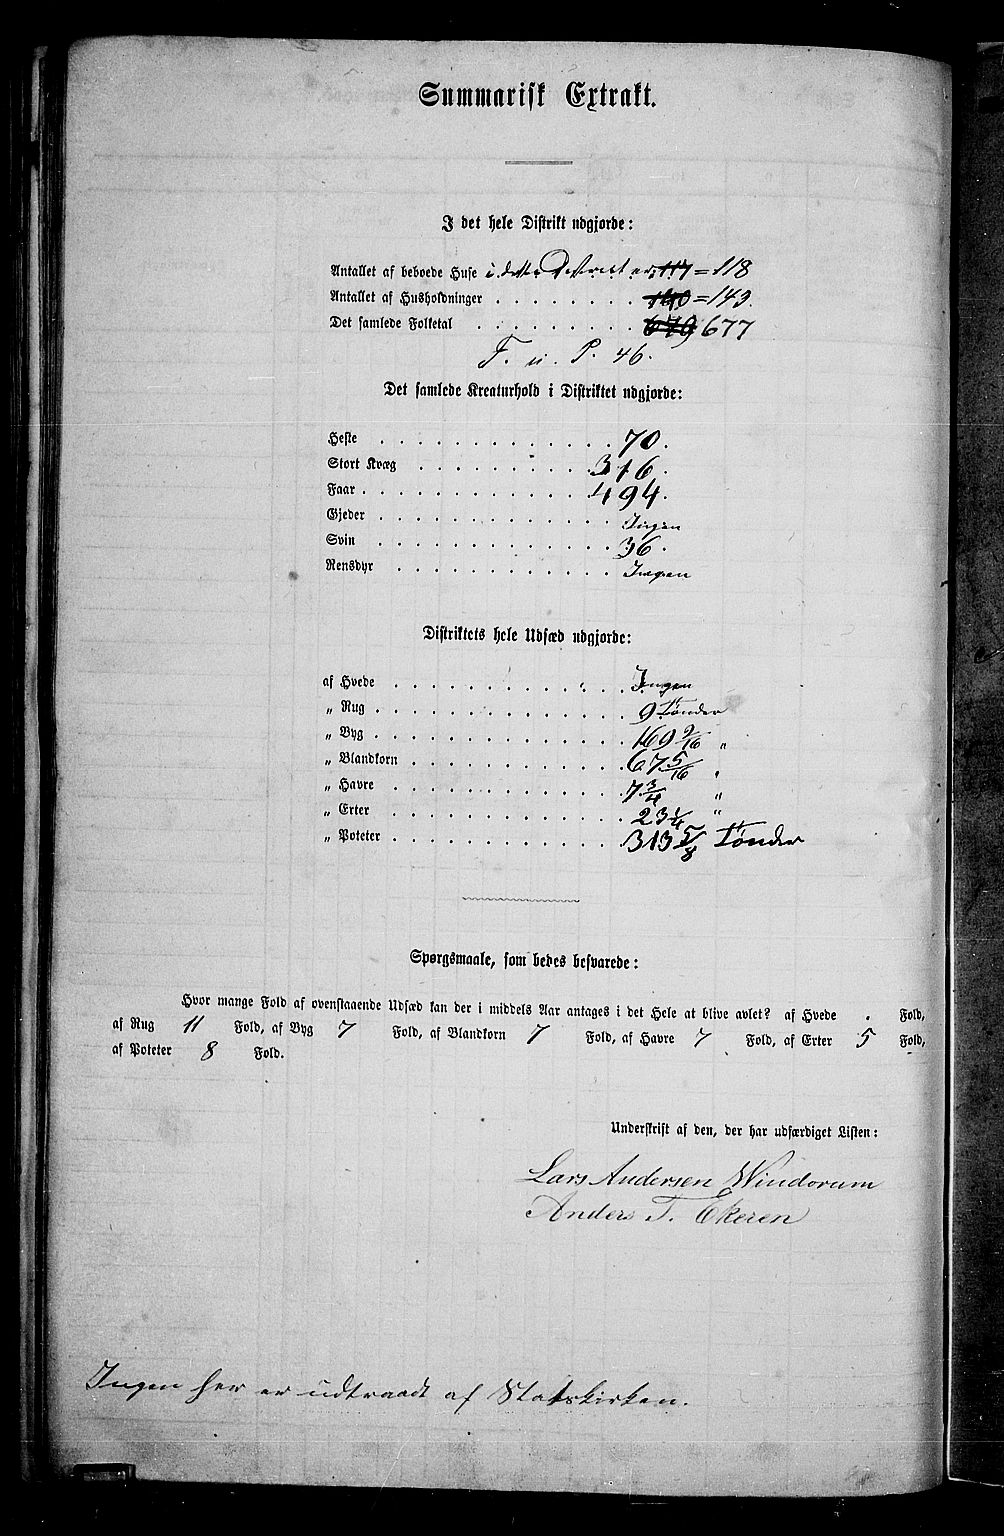 Summarisk Extrakt.
I det hele Distrikt udgjorde:
Antallet af beboede Huse i dette District er 117 = 118
Antallet af Husholdninger . . . . . . . . 140 = 143.
Det samlede Folketal . . . . . . . . . 679 677
F. u. P. 46.
Det samlede Kreaturhold i Distriktet udgjorde:
Heste . . . . . . . . . . . . . 70.
Stort Kvæg . . . . . . . . . . 316.
Faar . . . . . . . . . . . . . 494.
Gjeder . . . . . . . . . . . . . Ingen
Svin . . . . . . . . . . . . . 36.
Rensdyr . . . . . . . . . . . . Ingen
Distriktets hele Udsæd udgjorde:
af Hvede . . . . . . . . . . . . Ingen
„ Rug . . . . . . . . . . . . . 9 Tønder
„ Byg . . . . . . . . . . . . . 169 9/16 „
„ Blandkorn . . . . . . . . . . . 67 5/16 „
„ Havre . . . . . . . . . . . . 7 3/4 „
„ Erter . . . . . . . . . . . . 23 1/4 „
„ Poteter . . . . . . . . . . . . 313 5/8 Tønder
Spørgsmaale, som bedes besvarede:
Hvor mange Fold af ovenstaaende Udsæd kan der i middels Aar antages i det Hele at blive avlet? af Hvede . Fold,
af Rug 11 Fold, af Byg 7 Fold, af Blandkorn 7 Fold, af Havre 7 Fold, af Erter 5 Fold,
af Poteter 8 Fold.
Underskrift af den, der har udfærdiget Listen:
Lars Andersen Windorum
Anders T. Ekeren
Ingen her er udtraadt af Statskirken.